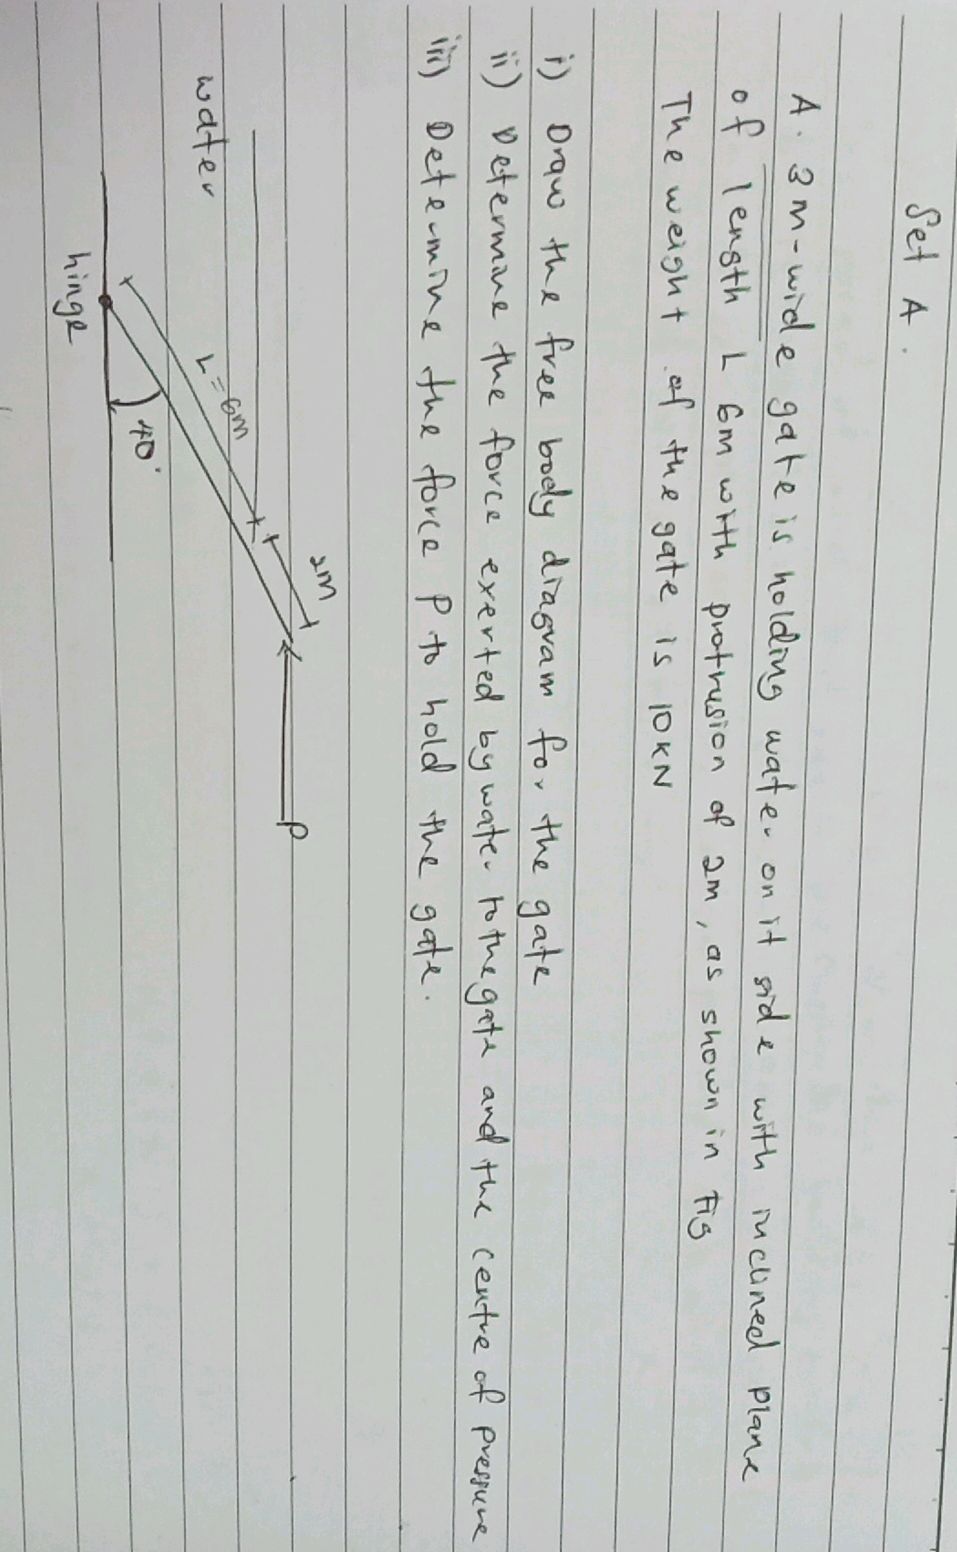 Set A.
A. 3m-wide gate is holding water on it side with inclined plane
of length L 6m with protrusion of 2m, as shown in Fig
The weight of the gate is 10KN
i) Draw the free body diagram for the gate
ii) Determine the force exerted by water to the gate and the centre of pressure
iii) Determine the force P to hold the gate.
2m
P
water
L=6m
40°
hinge